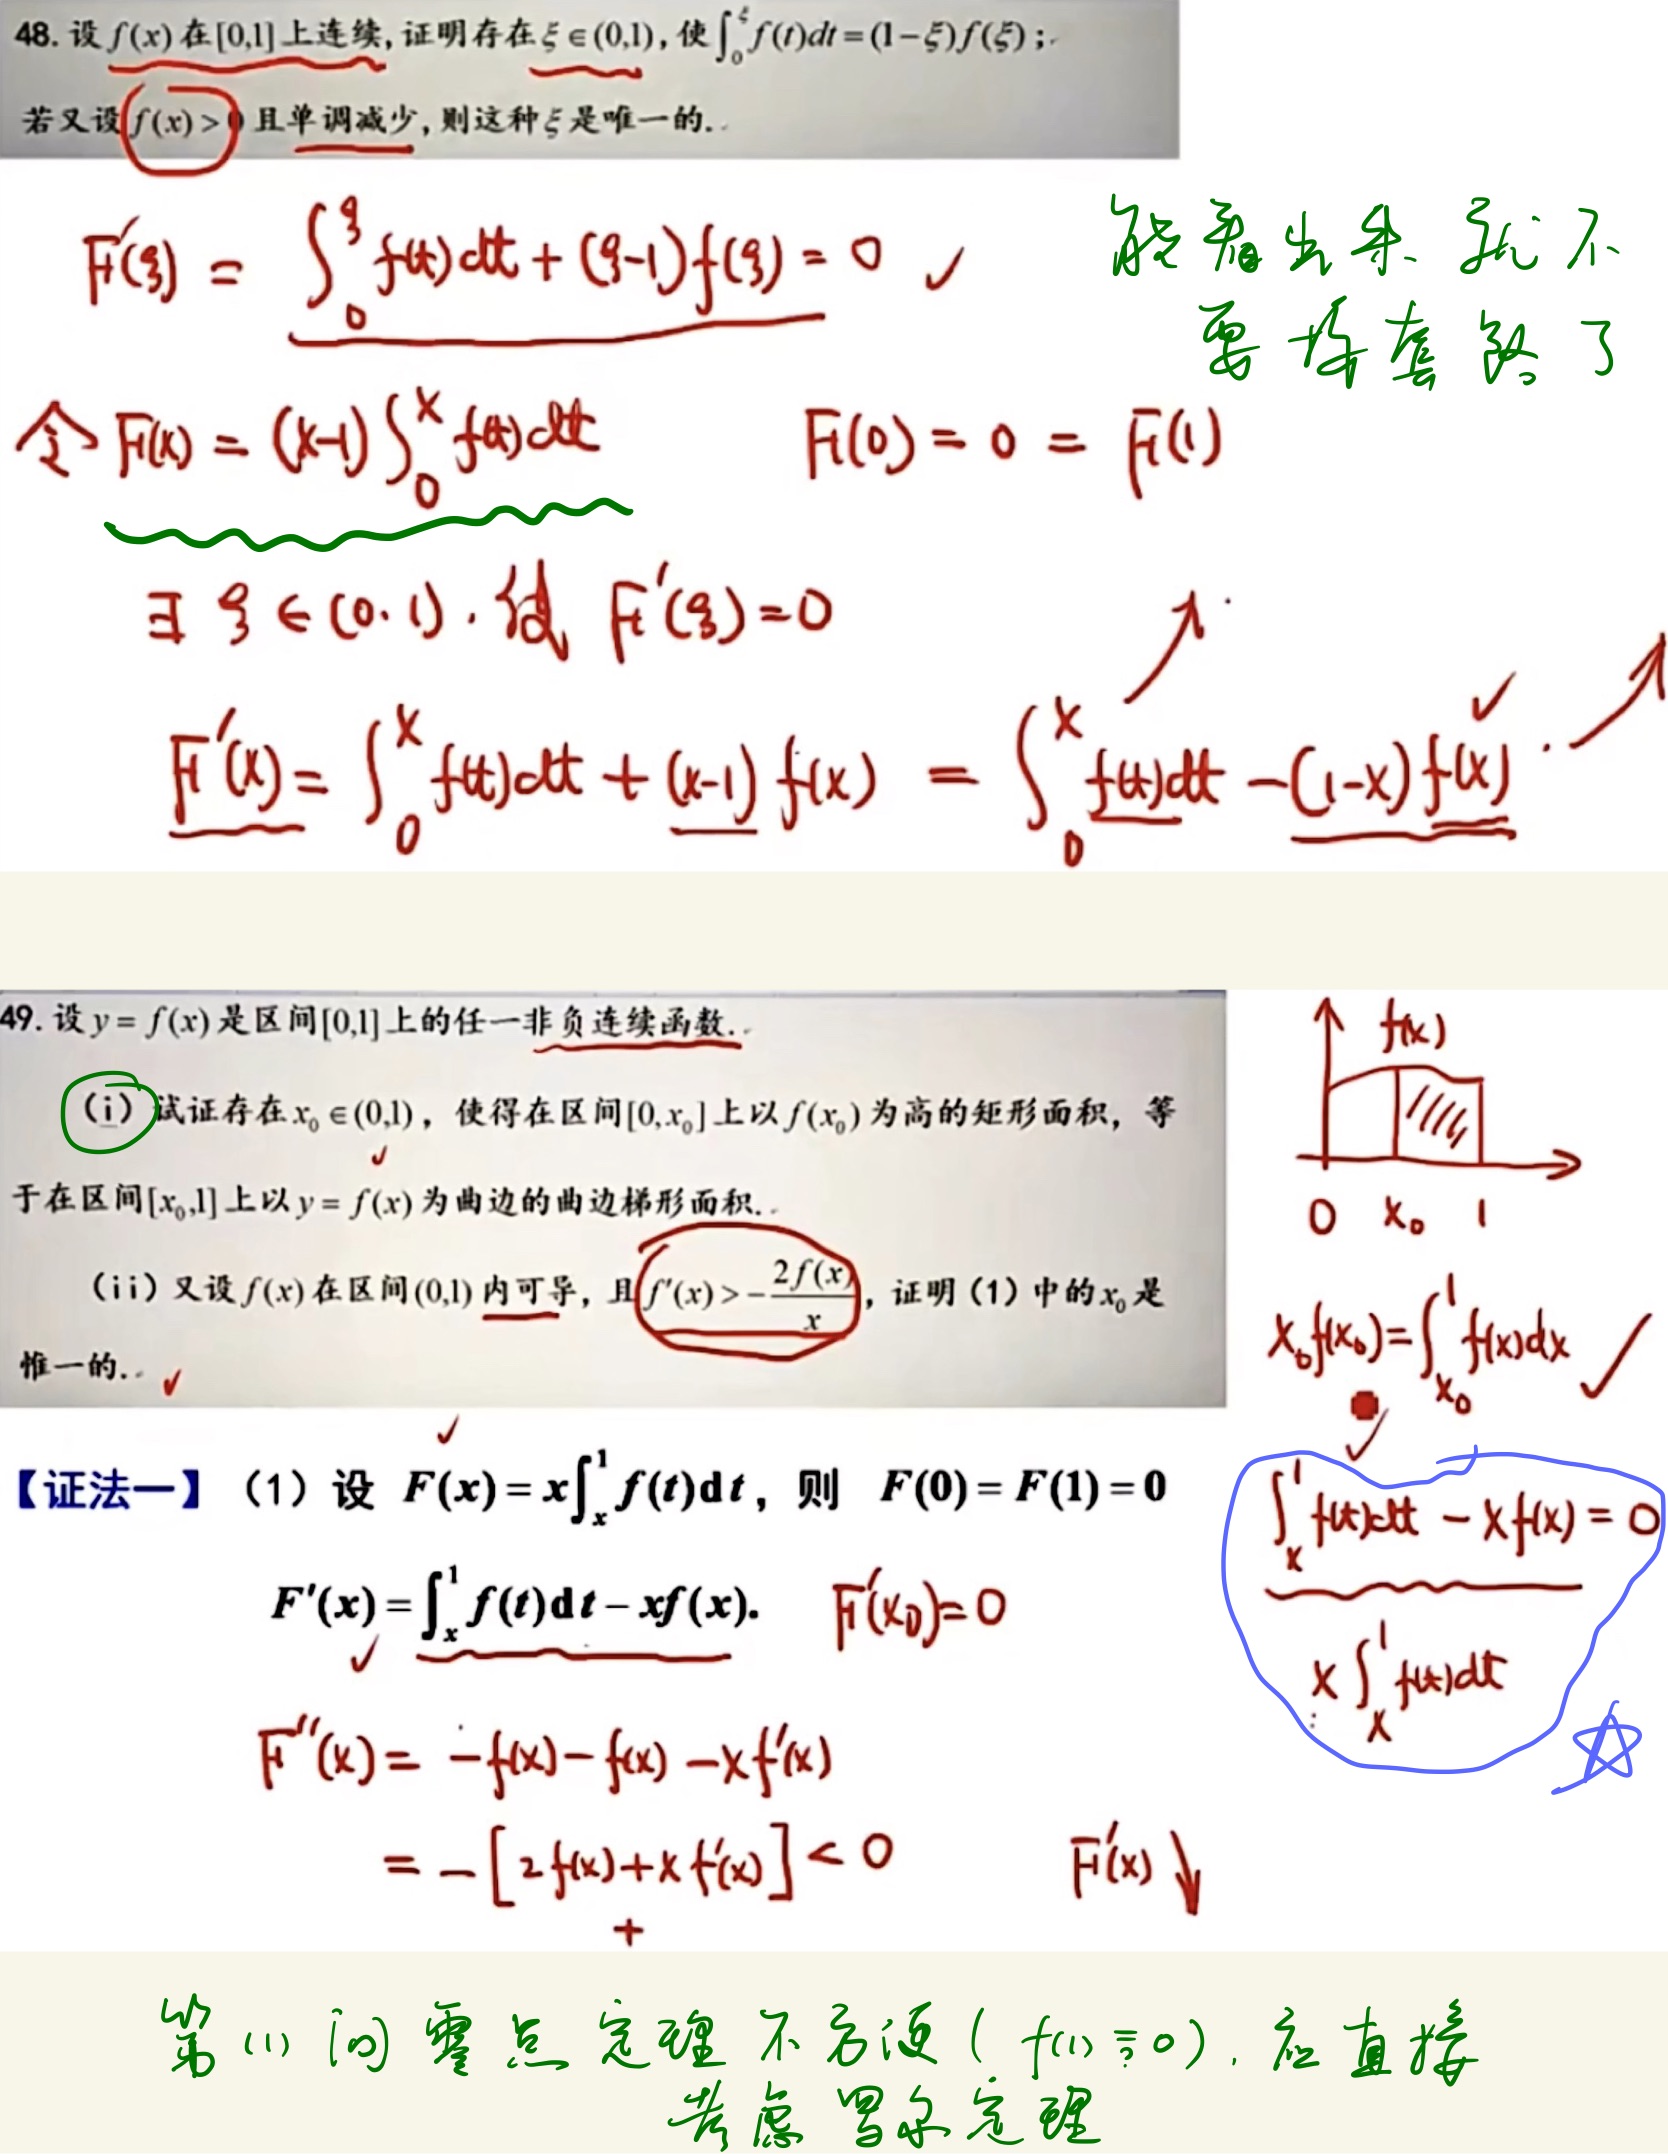 48. 设 f(x) 在[0,1]上连续, 证明存在 ξ∈(0,1), 使∫₀^ξ f(t)dt=(1−ξ)f(ξ);
若又设 f(x)>0 且单调减少, 则这种 ξ 是唯一的.
F′(ξ) = ∫₀^ξ f(t)dt + (ξ-1)f(ξ) = 0 ✓
能看出来 就不
要按套路了
令 F(x) = (x-1)∫₀^x f(t)dt F(0) = 0 = F(1)
∃ ξ ∈ (0.1). 使 F′(ξ)=0
F′(x) = ∫₀^x f(t)dt + (x-1) f(x) = ∫₀^x f(t)dt -(1-x) f(x)
49. 设 y = f(x) 是区间[0,1]上的任一非负连续函数.
(i) 试证存在 x₀∈(0,1), 使得在区间[0,x₀]上以 f(x₀) 为高的矩形面积, 等
于在区间[x₀,1]上以 y = f(x) 为曲边的曲边梯形面积.
(ii) 又设 f(x) 在区间(0,1) 内可导, 且 f′(x) > −2f(x)/x, 证明(1)中的 x₀ 是
惟一的.
f(x)
0 x₀ 1
x₀f(x₀)=∫_{x₀}^1 f(x)dx ✓
【证法一】(1) 设 F(x) = x∫ₓ¹ f(t)dt, 则 F(0) = F(1) = 0
∫ₓ¹ f(t)dt − xf(x) = 0
F′(x) = ∫ₓ¹ f(t)dt − xf(x). F′(x₀)=0
x∫ₓ¹ f(t)dt
F″(x) = -f(x) - f(x) - xf′(x)
= -[2f(x)+xf′(x)] < 0 F′(x)↓
+
第(1)问零点定理不方便( f(1) ≟ 0 ). 应直接
考虑罗尔定理